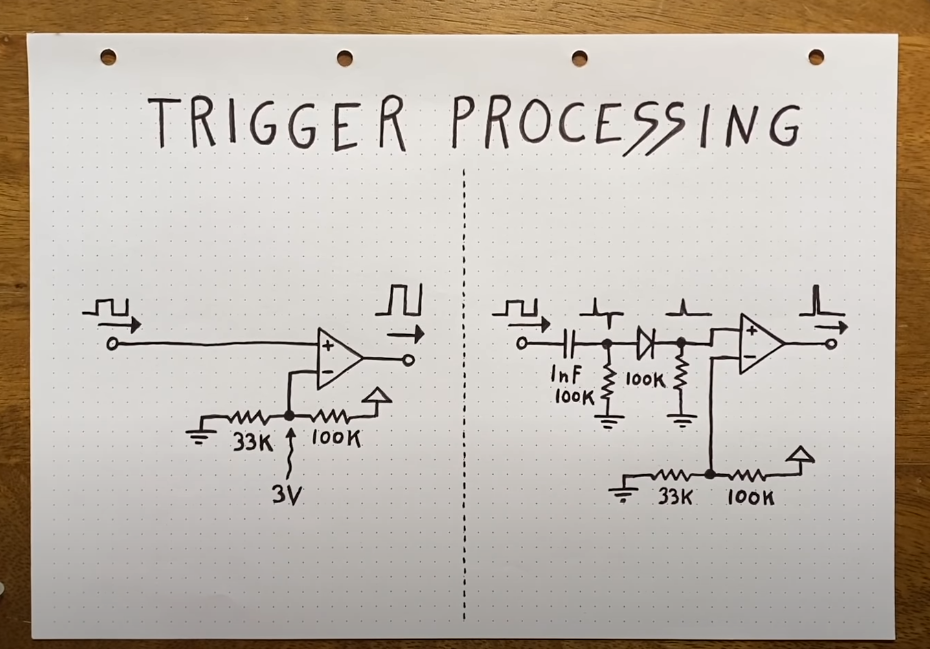 TRIGGER PROCESSING
+
-
33K
100K
3V
1nF
100K
100K
+
-
33K
100K